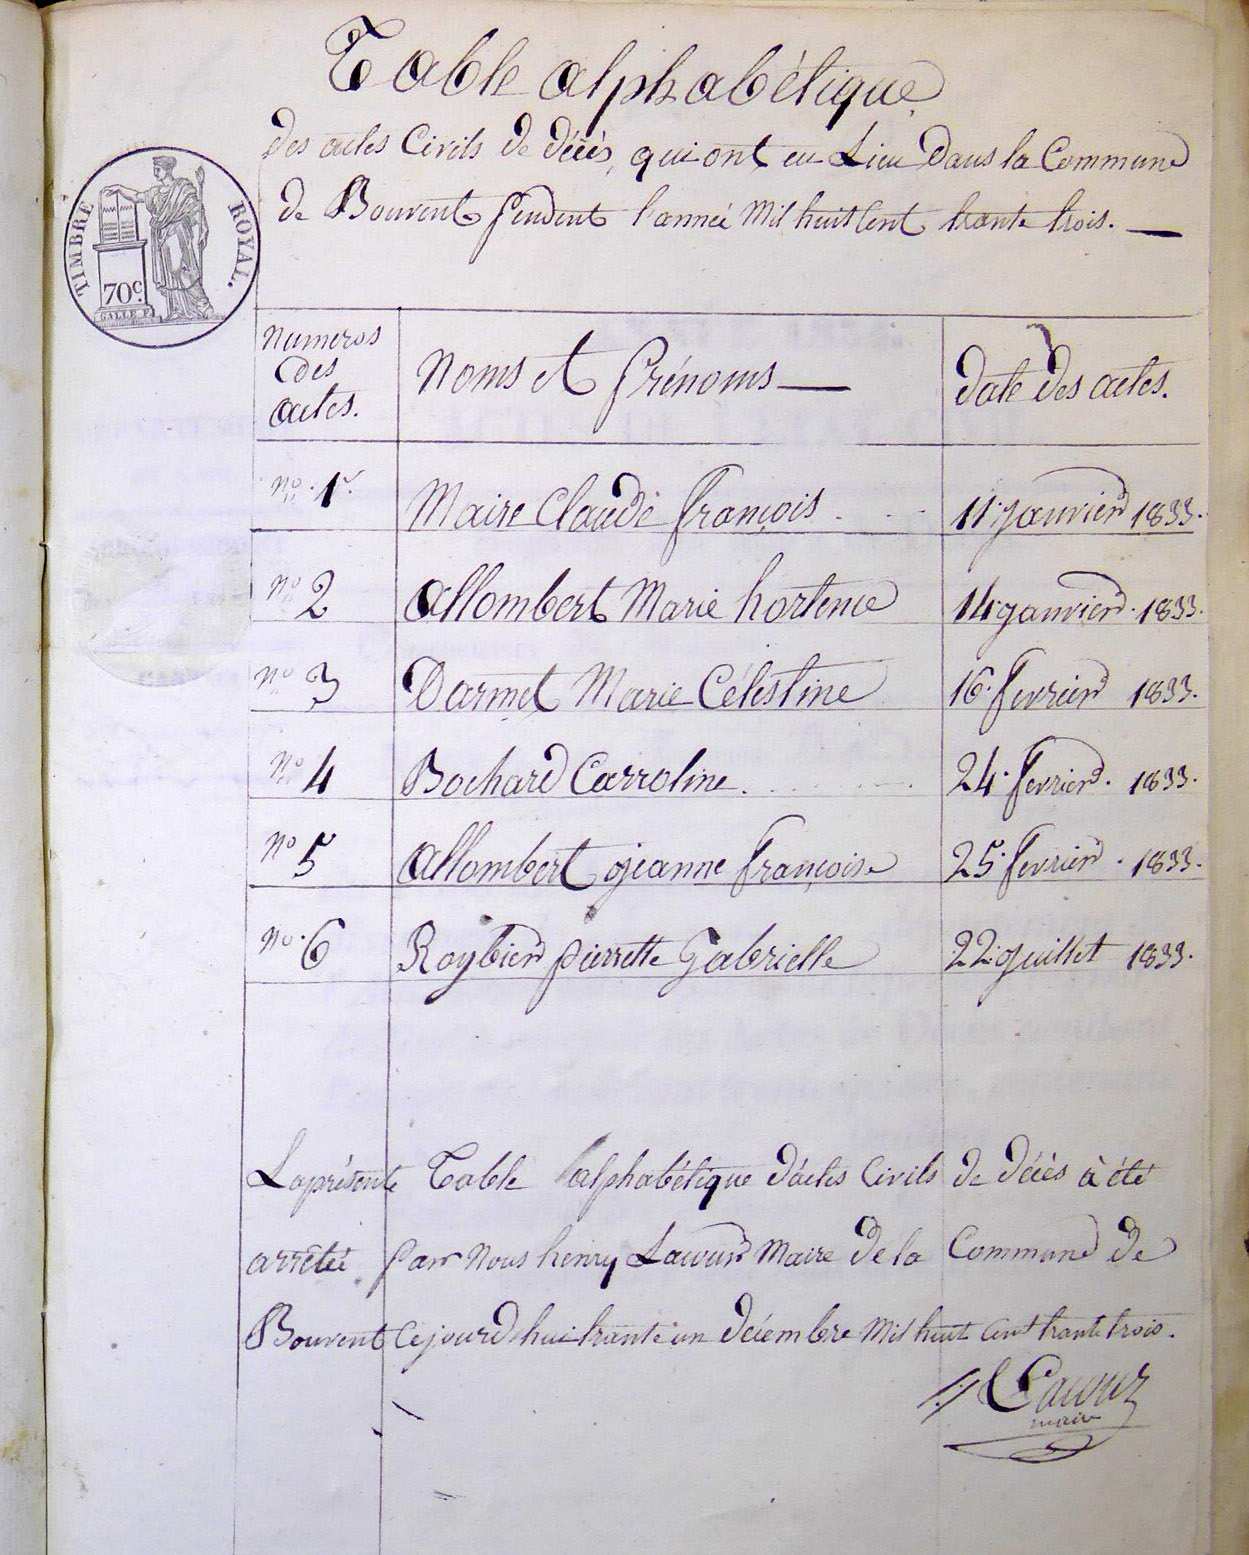 Table alphabétique
des actes Civils de décès, qui ont eu Lieu dans la Commune
de Bouvent pendent l'année Mil huit Cent trante trois.
TIMBRE ROYAL.
70c.
numeros des actes.
Noms et prénoms
date des actes.
No. 1er.
Maire Claude françois
11. janvier 1833.
No 2
Allombert Marie hortence
14 janvier. 1833.
No 3
Darmet Marie Célestine
16. fevrier 1833.
No 4
Bochard Carroline
24. fevrier. 1833.
No 5
Allombert jeanne françoise
25. fevrier. 1833.
No. 6
Roybier pierrette Gabrielle
22. juillet 1833.
La présente Table alphabétique d'actes Civils de décès à été
arrêtée par Nous henry Maire de la Commune de
Bouvent Cejourd'hui trante un décembre Mil huit Cent trante trois.
maire